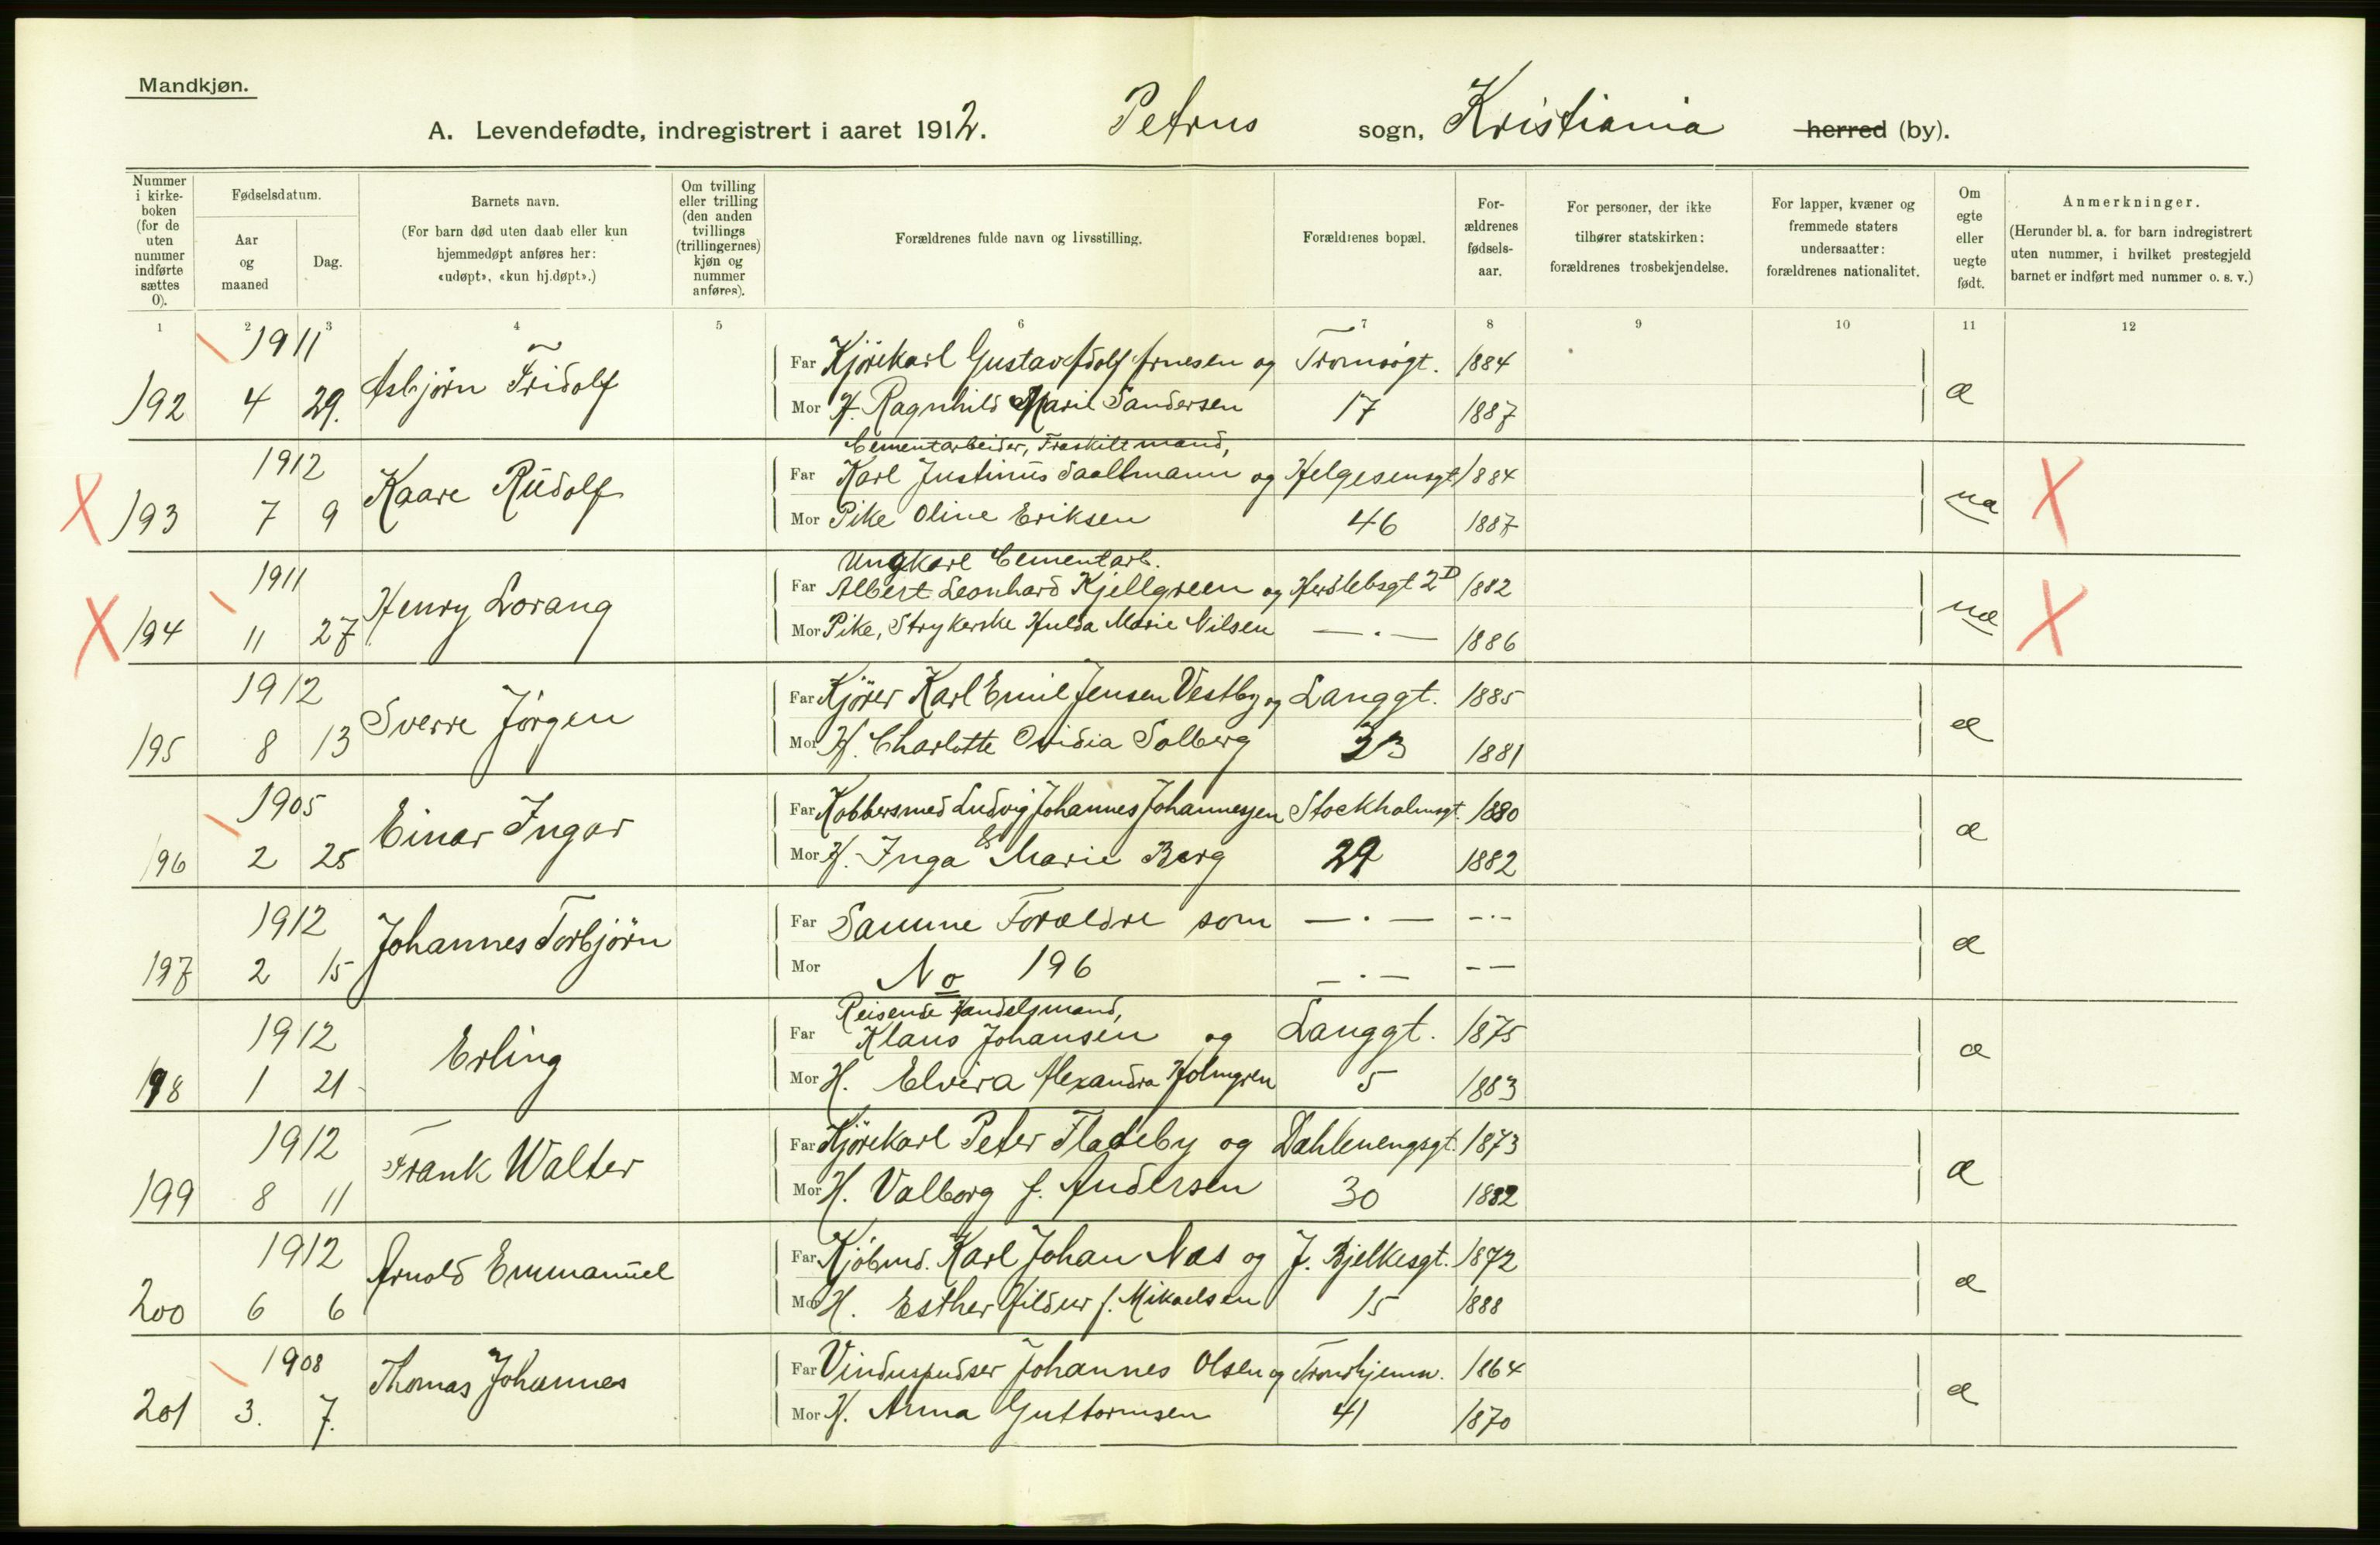 Mandkjøn.
A. Levendefødte, indregistrert i aaret 1912. Petrus sogn, Kristiania herred (by).
Nummer i kirkeboken (for de uten nummer indførte sættes 0).
Fødselsdatum.
Aar og maaned
Dag.
Barnets navn.
(For barn død uten daab eller kun hjemmedøpt anføres her: «udøpt», «kun hj.døpt».)
Om tvilling eller trilling (den anden tvillings (trillingernes) kjøn og nummer anføres).
Forældrenes fulde navn og livsstilling.
Forældrenes bopæl.
Forældrenes fødselsaar.
For personer, der ikke tilhører statskirken: forældrenes trosbekjendelse.
For lapper, kvæner og fremmede staters undersaatter: forældrenes nationalitet.
Om egte eller uegte født.
Anmerkninger.
(Herunder bl. a. for barn indregistrert uten nummer, i hvilket prestegjeld barnet er indført med nummer o. s. v.)
1 2 3 4 5 6 7 8 9 10 11 12
1911
192 4 29. Asbjörn Fridolf
Far Kjörekarl Gustav Adolf Arnesen og Tromsögt. 1884
Mor H. Ragnhild Marie Sandersen 17 1887
æ
1912
193 7 9 Kaare Rudolf
Cementarbeider, Fraskilt mand,
Far Karl Justinus Saaltmann og Helgesensgt 1884
Mor Pike Oline Eriksen 46 1887
uæ X
1911
194 11 27 Henry Lorang
Ungkarl Cementarb.
Far Albert Leonhard Kjellgreen og Herslebsgt 2D 1882
Mor Pike, Strykerske Hulda Marie Nilsen — . — 1886
uæ X
1912
195 8 13 Sverre Jörgen
Far Kjörer Karl Emil Jensen Vestby og Langgt. 1885
Mor H. Charlotte Ovidia Solberg 33 1881
æ
1905
196 2 25 Einar Ingar
Far Kobbersmed Ludvig Johannes Johannesen Stockholmsgt. 1880
Mor H. Inga E Marie Berg 29 1882
æ
1912
197 2 15 Johannes Torbjörn
Far Samme Forældre som — . — – . –
Mor No 196 — . — – –
æ
1912
198 1 21 Erling
Reisende Handelsmand,
Far Klaus Johansen og Langgt. 1875
Mor H. Elvira Alexandra Holmgren 5 1883
æ
1912
199 8 11 Frank Walter
Far Kjörekarl Peter Fladeby og Dahlenengsgt. 1873
Mor H. Valborg f. Andersen 30 1882
æ
1912
200 6 6 Arnold Emmanuel
Far Kjöbmd. Karl Johan Næs og J. Bjelkesgt. 1872
Mor H. Esther Hildur f. Mikaelsen 15 1888
æ
1908
201 3. 7. Thomas Johannes
Far Vinduspudser Johannes Olsen og Trondhjemsv. 1864
Mor H. Anna Guttormsen 41 1870
æ